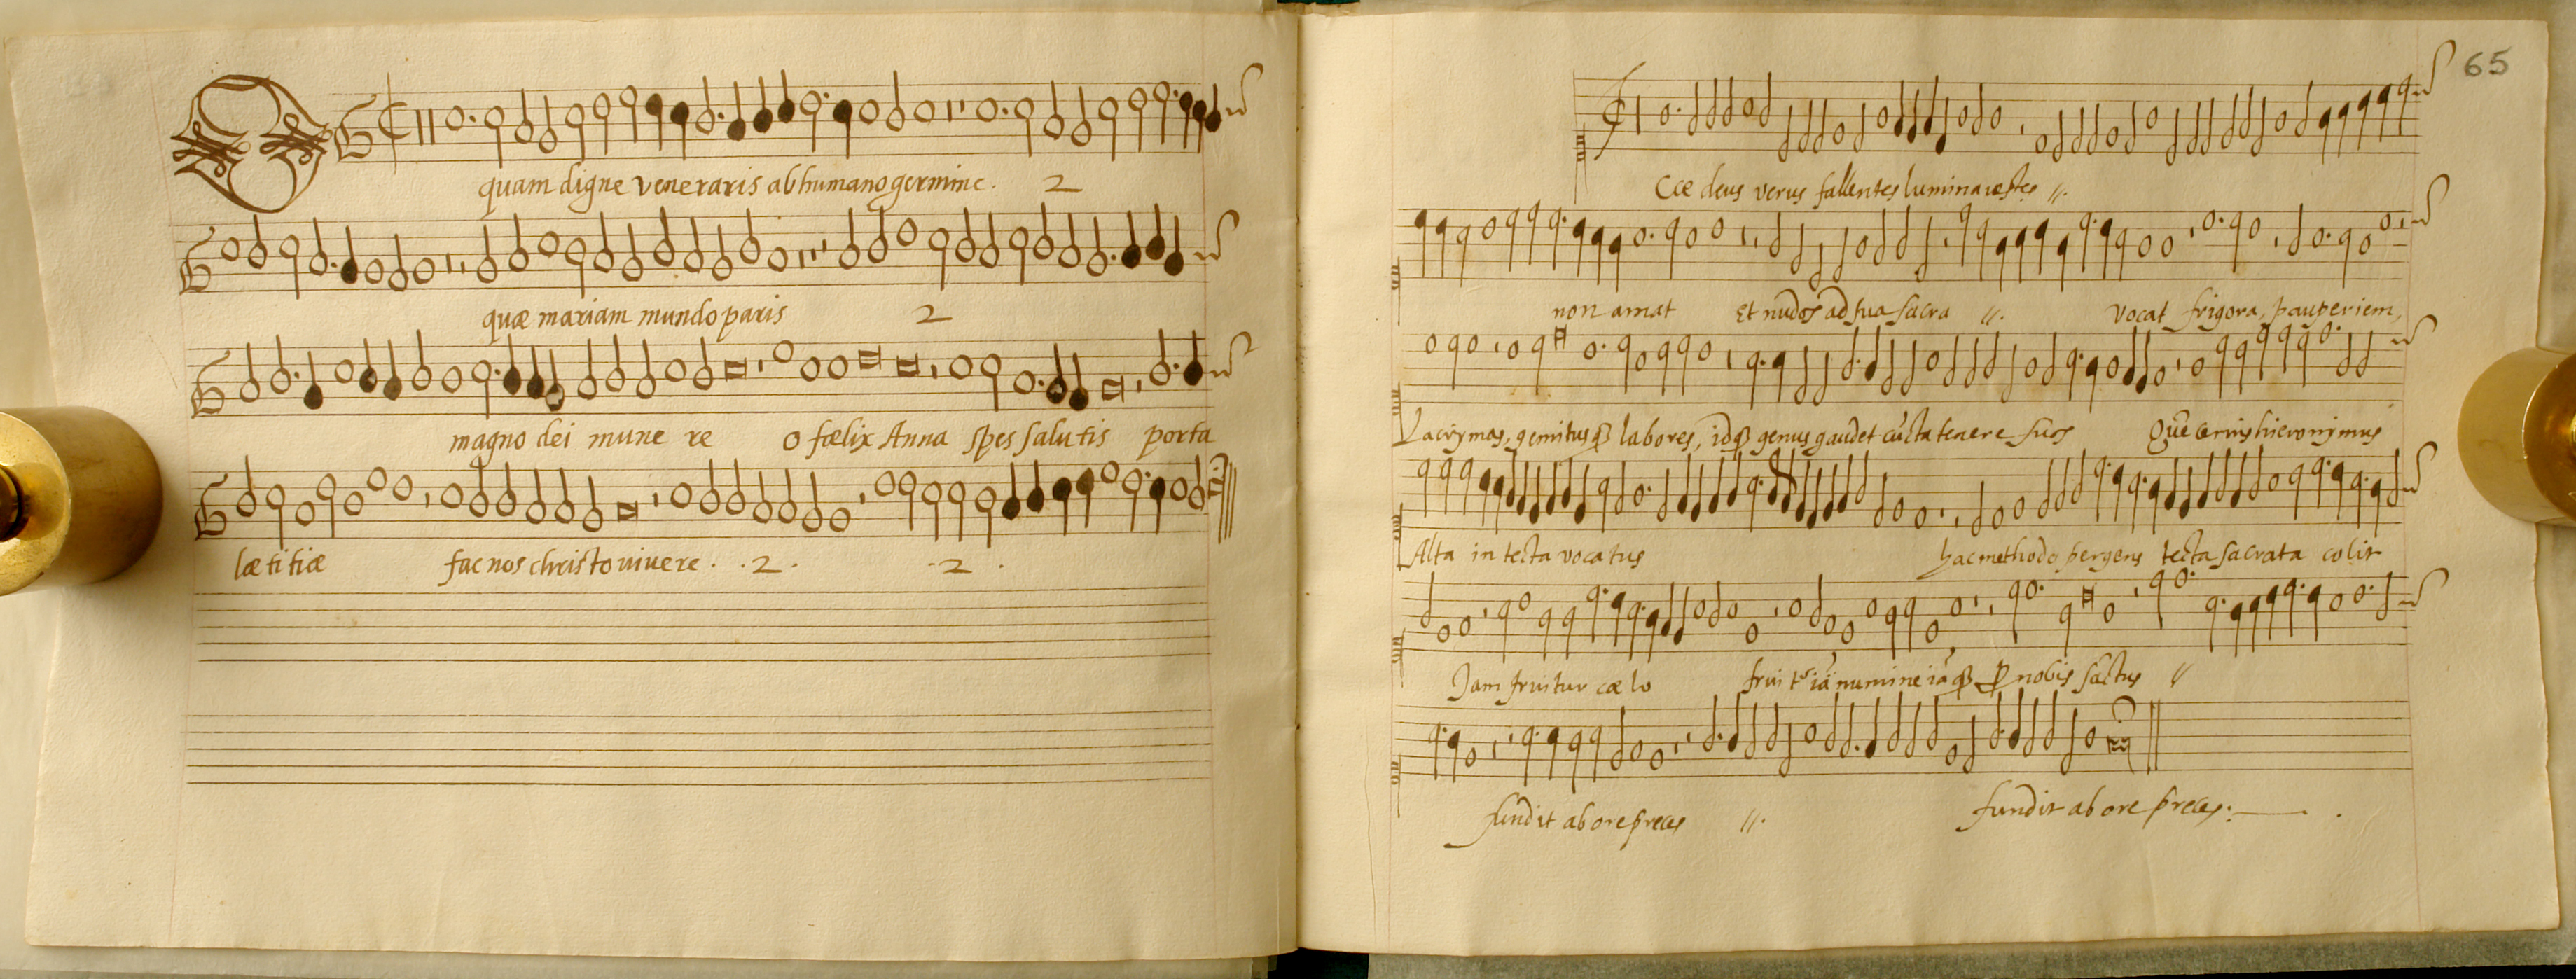 O quam digne veneraris ab humano germine. 2
quæ mariam mundo paris 2
magno dei mune re o fælix Anna spes salutis porta
lætitiæ fac nos christo vivere . . 2 . . 2 .
65
Cce deus verus fallentes lumina vestes //.
non amat Et nudos ad sua sacra //. vocat frigora, pauperiem,
Lacrymas, gemitusq labores, idq genus gaudet cūcta tenere suos Quē cernis hieronymus
Alta in tecta vocatus hac methodo pergens tecta sacrata colit
Jam fruitur cælo frui tr iā numine iāq p nobis sāctus //
fundit ab ore preces //. fundit ab ore preces.